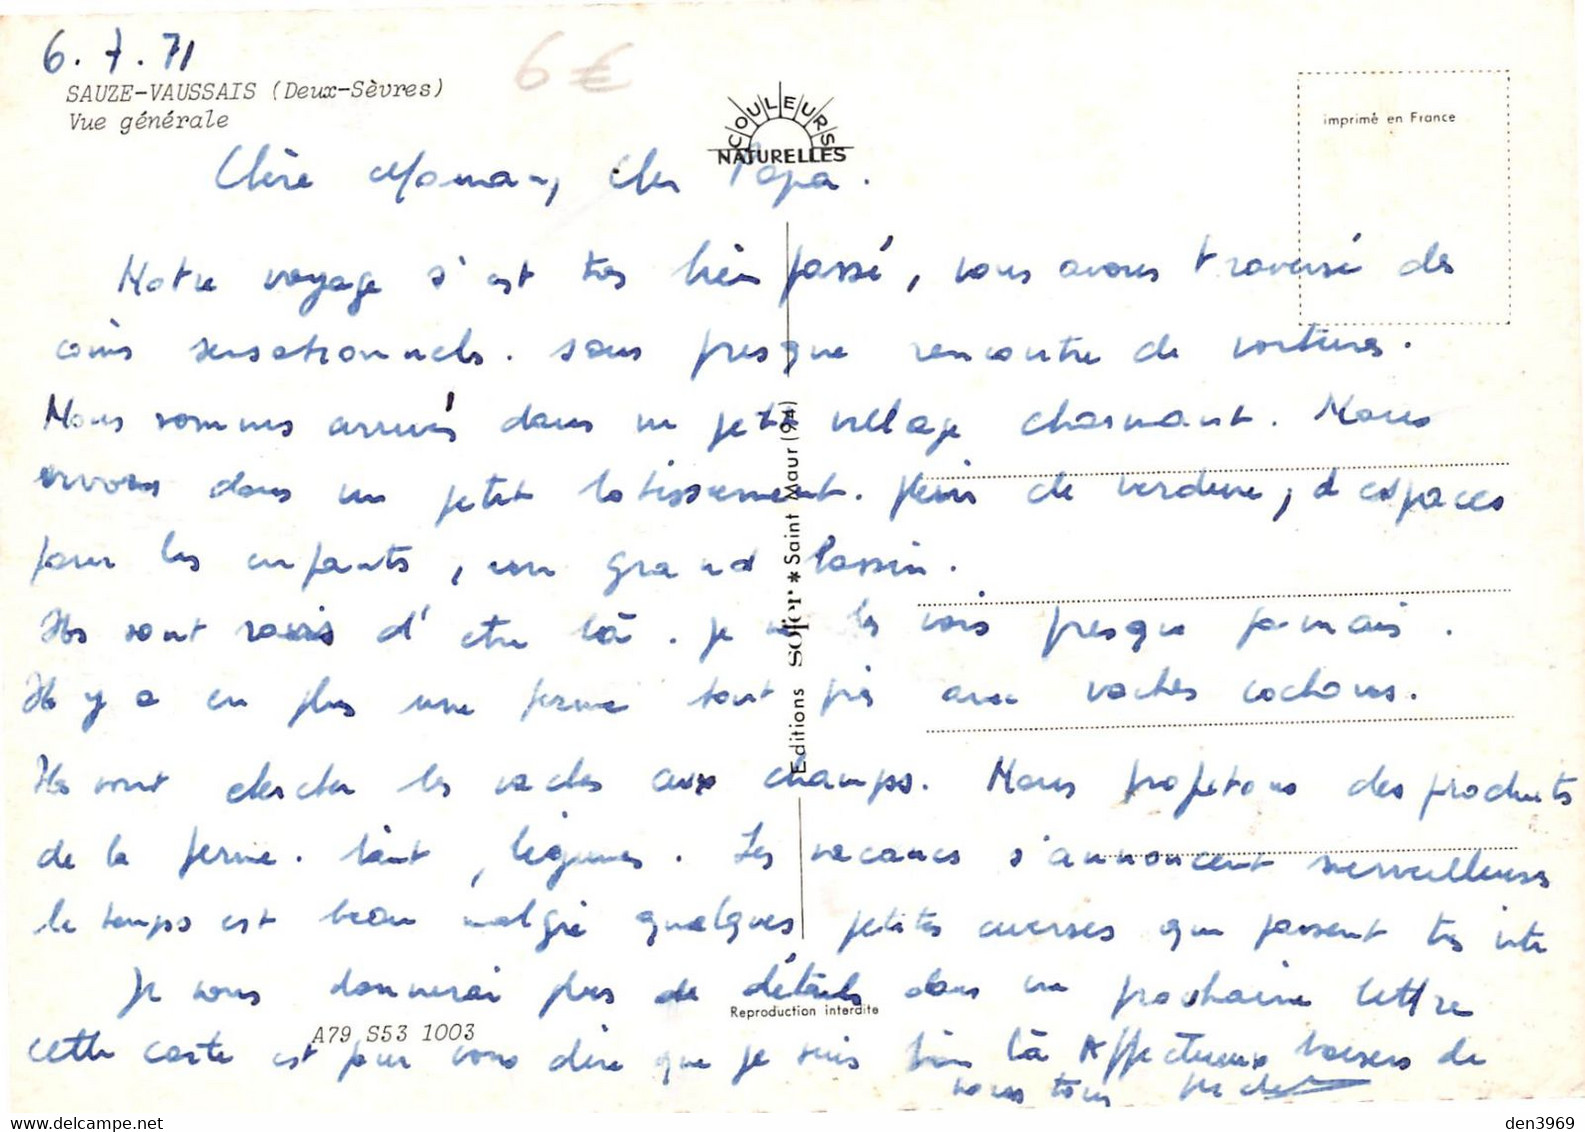 6.7.71
6€
SAUZE-VAUSSAIS (Deux-Sèvres)
Vue générale
COULEURS
NATURELLES
imprimé en France
Chère Maman, Cher Papa.
Notre voyage s'est très bien passé, nous avons traversé des
coins sensationnels. sans presque rencontre de voitures.
Nous sommes arrivés dans un petit village charmant. Nous
vivons dans un petit lotissement. plein de verdure, d'espaces
pour les enfants, un grand bassin.
Ils sont ravis d'être là. je ne les vois presque jamais.
Il y a en plus une ferme tout près avec vaches cochons.
Ils vont chercher les vaches aux champs. Nous profitons des produits
de la ferme. lait, légumes. Les vacances s'annoncent merveilleuses
le temps est beau malgré quelques petites averses qui passent très vite
Je vous donnerai plus de détails dans une prochaine lettre
cette carte est pour vous dire que je suis bien là Affectueux baisers de
nous tous Michel
Editions sofer * Saint Maur (94)
Reproduction interdite
A79 S53 1003
den3969